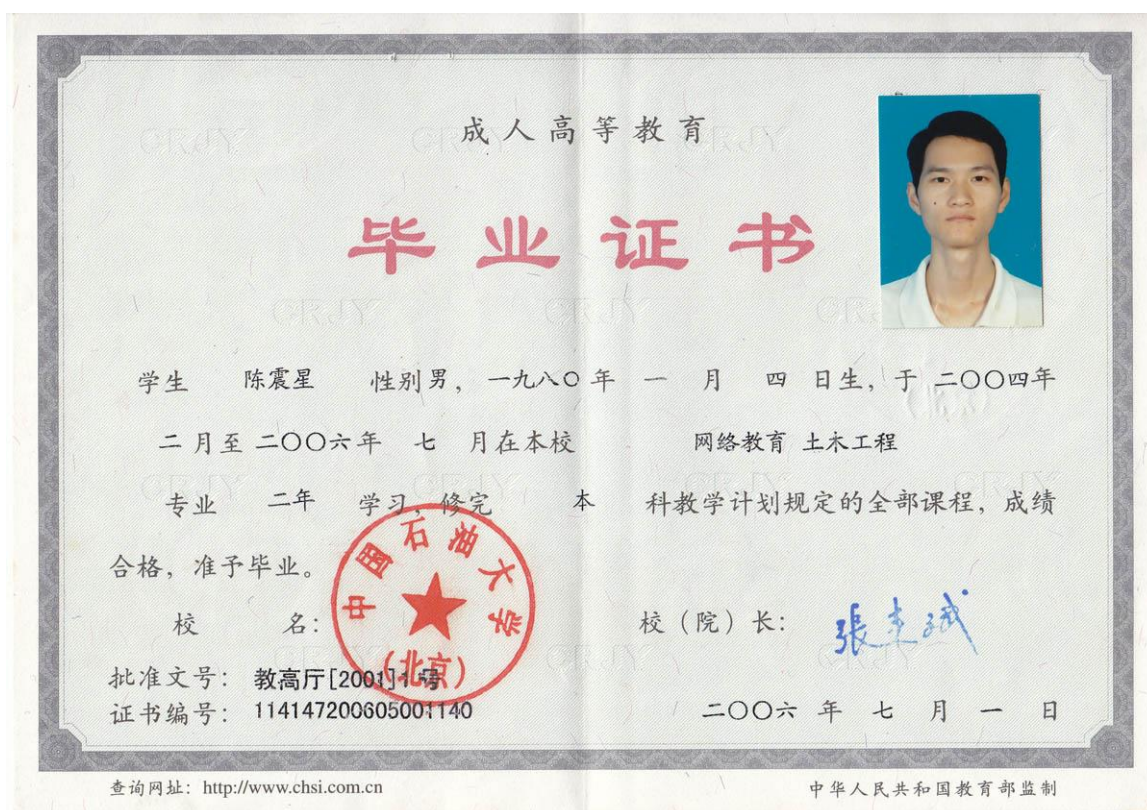 成人高等教育
毕业证书
学生 陈震星 性别男，一九八〇年 一 月 四 日生，于 二〇〇四年
二 月至 二〇〇六年 七 月在本校 网络教育 土木工程
专业 二年 学习，修完 本 科教学计划规定的全部课程，成绩
合格，准予毕业。
校 名： 中国石油大学（北京）
校（院）长： 張来斌
批准文号： 教高厅[2001]1号
证书编号： 114147200605001140
二〇〇六 年 七 月 一 日
查询网址：http://www.chsi.com.cn
中华人民共和国教育部监制
CRJY